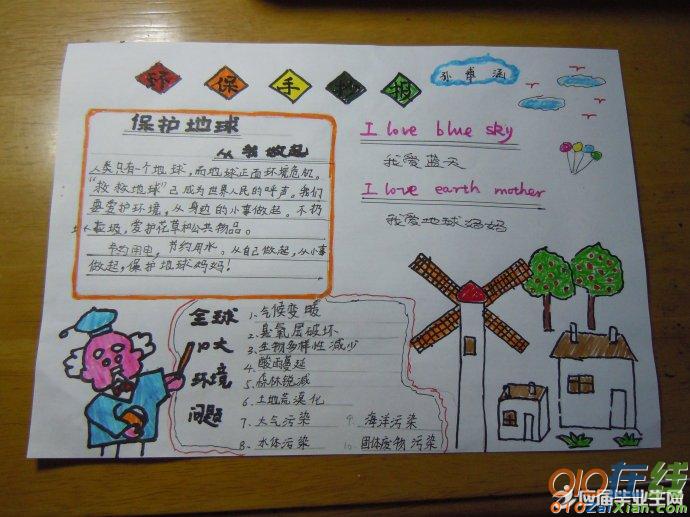 环保手抄报
孙卓涵
保护地球
从我做起
人类只有一个地球，而地球正面环境危机。
“救救地球”已成为世界人民的呼声。我们
要爱护环境，从身边的小事做起。不扔
垃圾，爱护花草和公共物品。
节约用电，节约用水。从自己做起，从小事
做起，保护地球妈妈！
I love blue sky
我爱蓝天
I love earth mother
我爱地球妈妈
全球
十大
环境
问题
1.气候变暖
2.臭氧层破坏
3.生物多样性减少
4.酸雨蔓延
5.森林锐减
6.土地荒漠化
7.大气污染
8.水体污染
9.海洋污染
10.固体废物污染
010在线
应届毕业生网
010zaixian.com